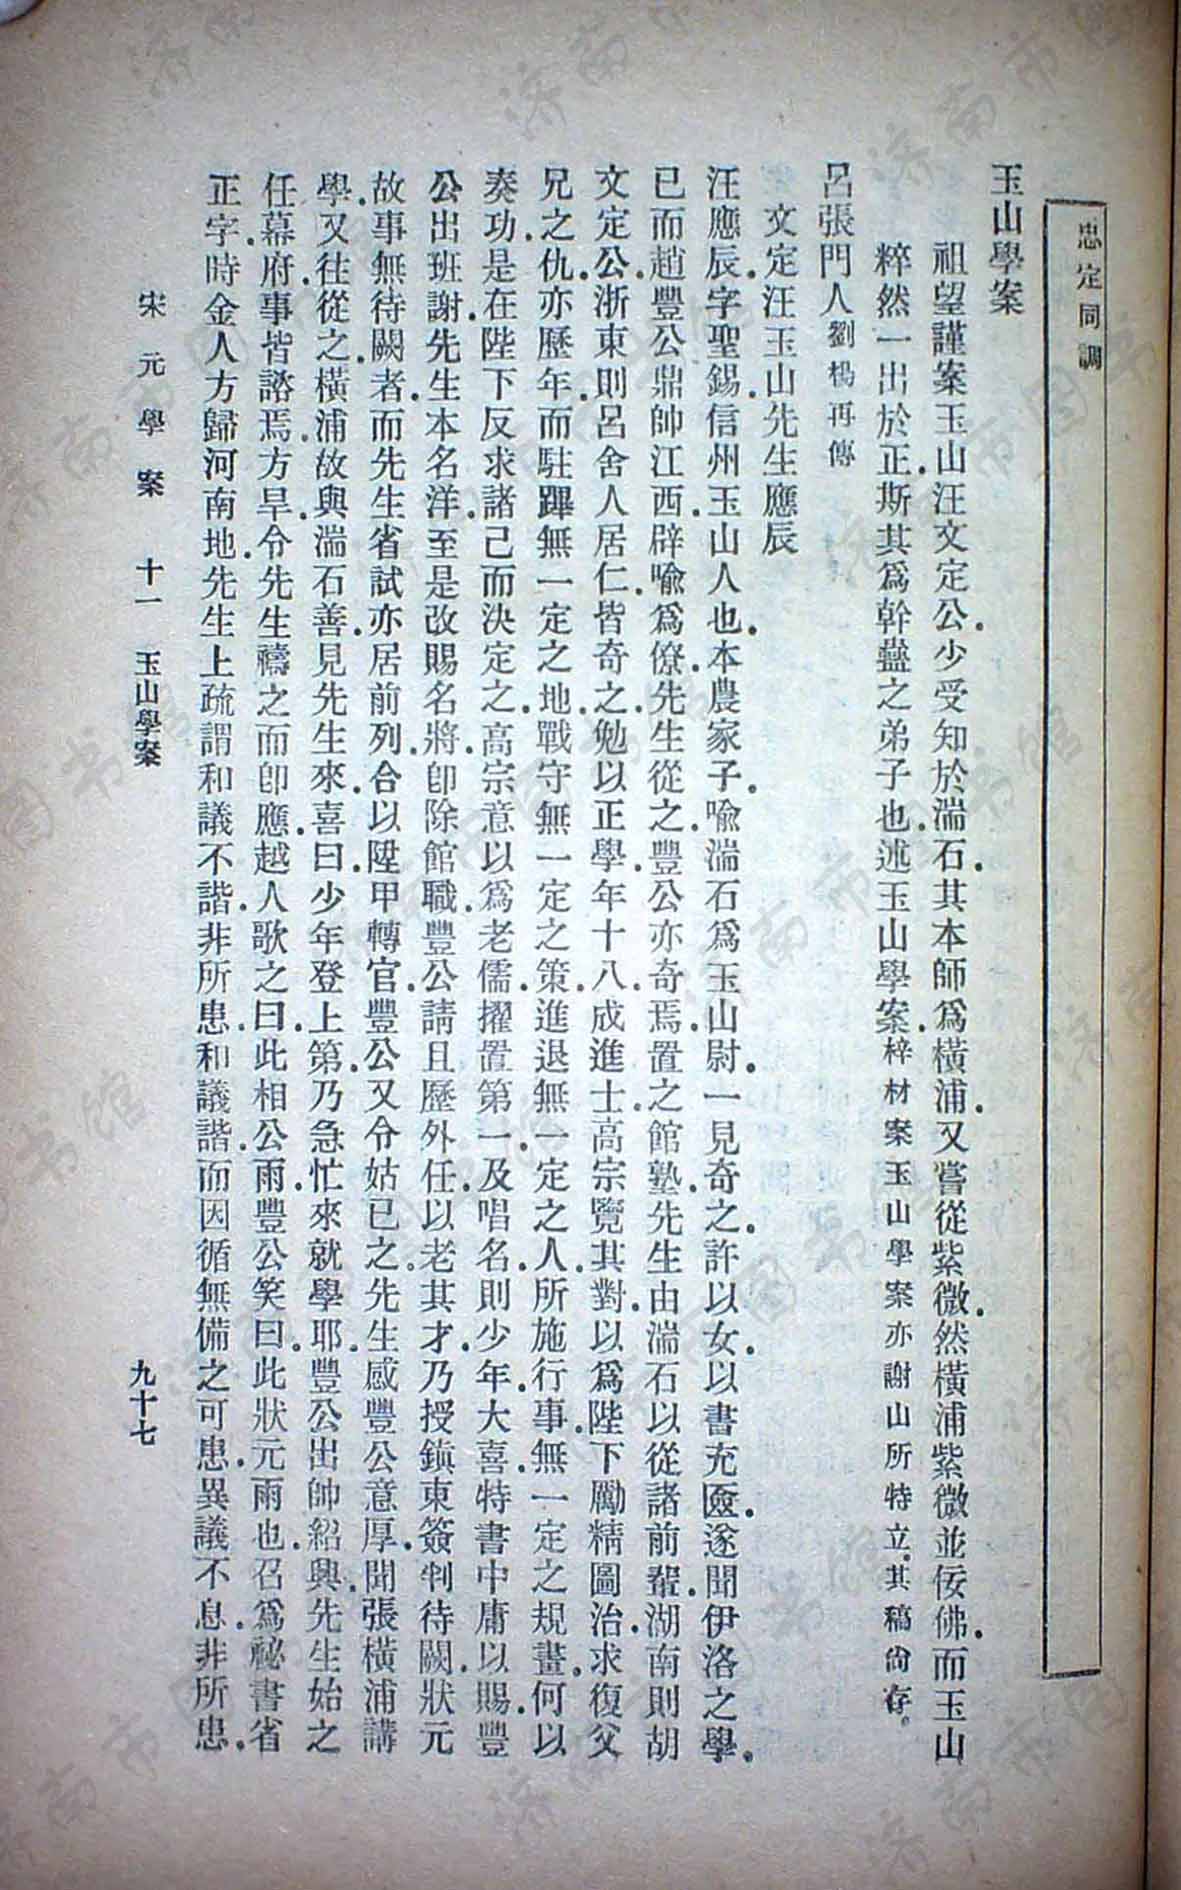 忠定同調
玉山學案
祖望謹案玉山汪文定公少受知於湍石其本師爲橫浦又嘗從紫微然橫浦紫微並佞佛而玉山
粹然一出於正斯其爲幹蠱之弟子也述玉山學案梓材案玉山學案亦謝山所特立其稿尙存。
呂張門人劉楊再傳
文定汪玉山先生應辰
汪應辰字聖錫信州玉山人也本農家子喩湍石爲玉山尉一見奇之許以女以書充匳遂聞伊洛之學
已而趙豐公鼎帥江西辟喩爲僚先生從之豐公亦奇焉置之館塾先生由湍石以從諸前輩湖南則胡
文定公浙東則呂舍人居仁皆奇之勉以正學年十八成進士高宗覽其對以爲陛下勵精圖治求復父
兄之仇亦歷年而駐蹕無一定之地戰守無一定之策進退無一定之人所施行事無一定之規畫何以
奏功是在陛下反求諸己而決定之高宗意以爲老儒擢置第一及唱名則少年大喜特書中庸以賜豐
公出班謝先生本名洋至是改賜名將卽除館職豐公請且歷外任以老其才乃授鎭東簽判待闕狀元
故事無待闕者而先生省試亦居前列合以陞甲轉官豐公又令姑已之先生感豐公意厚聞張橫浦講
學又往從之橫浦故與湍石善見先生來喜曰少年登上第乃急忙來就學耶豐公出帥紹興先生始之
任幕府事皆諮焉方旱令先生禱之而卽應越人歌之曰此相公雨豐公笑曰此狀元雨也召爲祕書省
正字時金人方歸河南地先生上疏謂和議不諧非所患和議諧而因循無備之可患異議不息非所患
宋元學案 十一 玉山學案 九十七
济南市图书馆